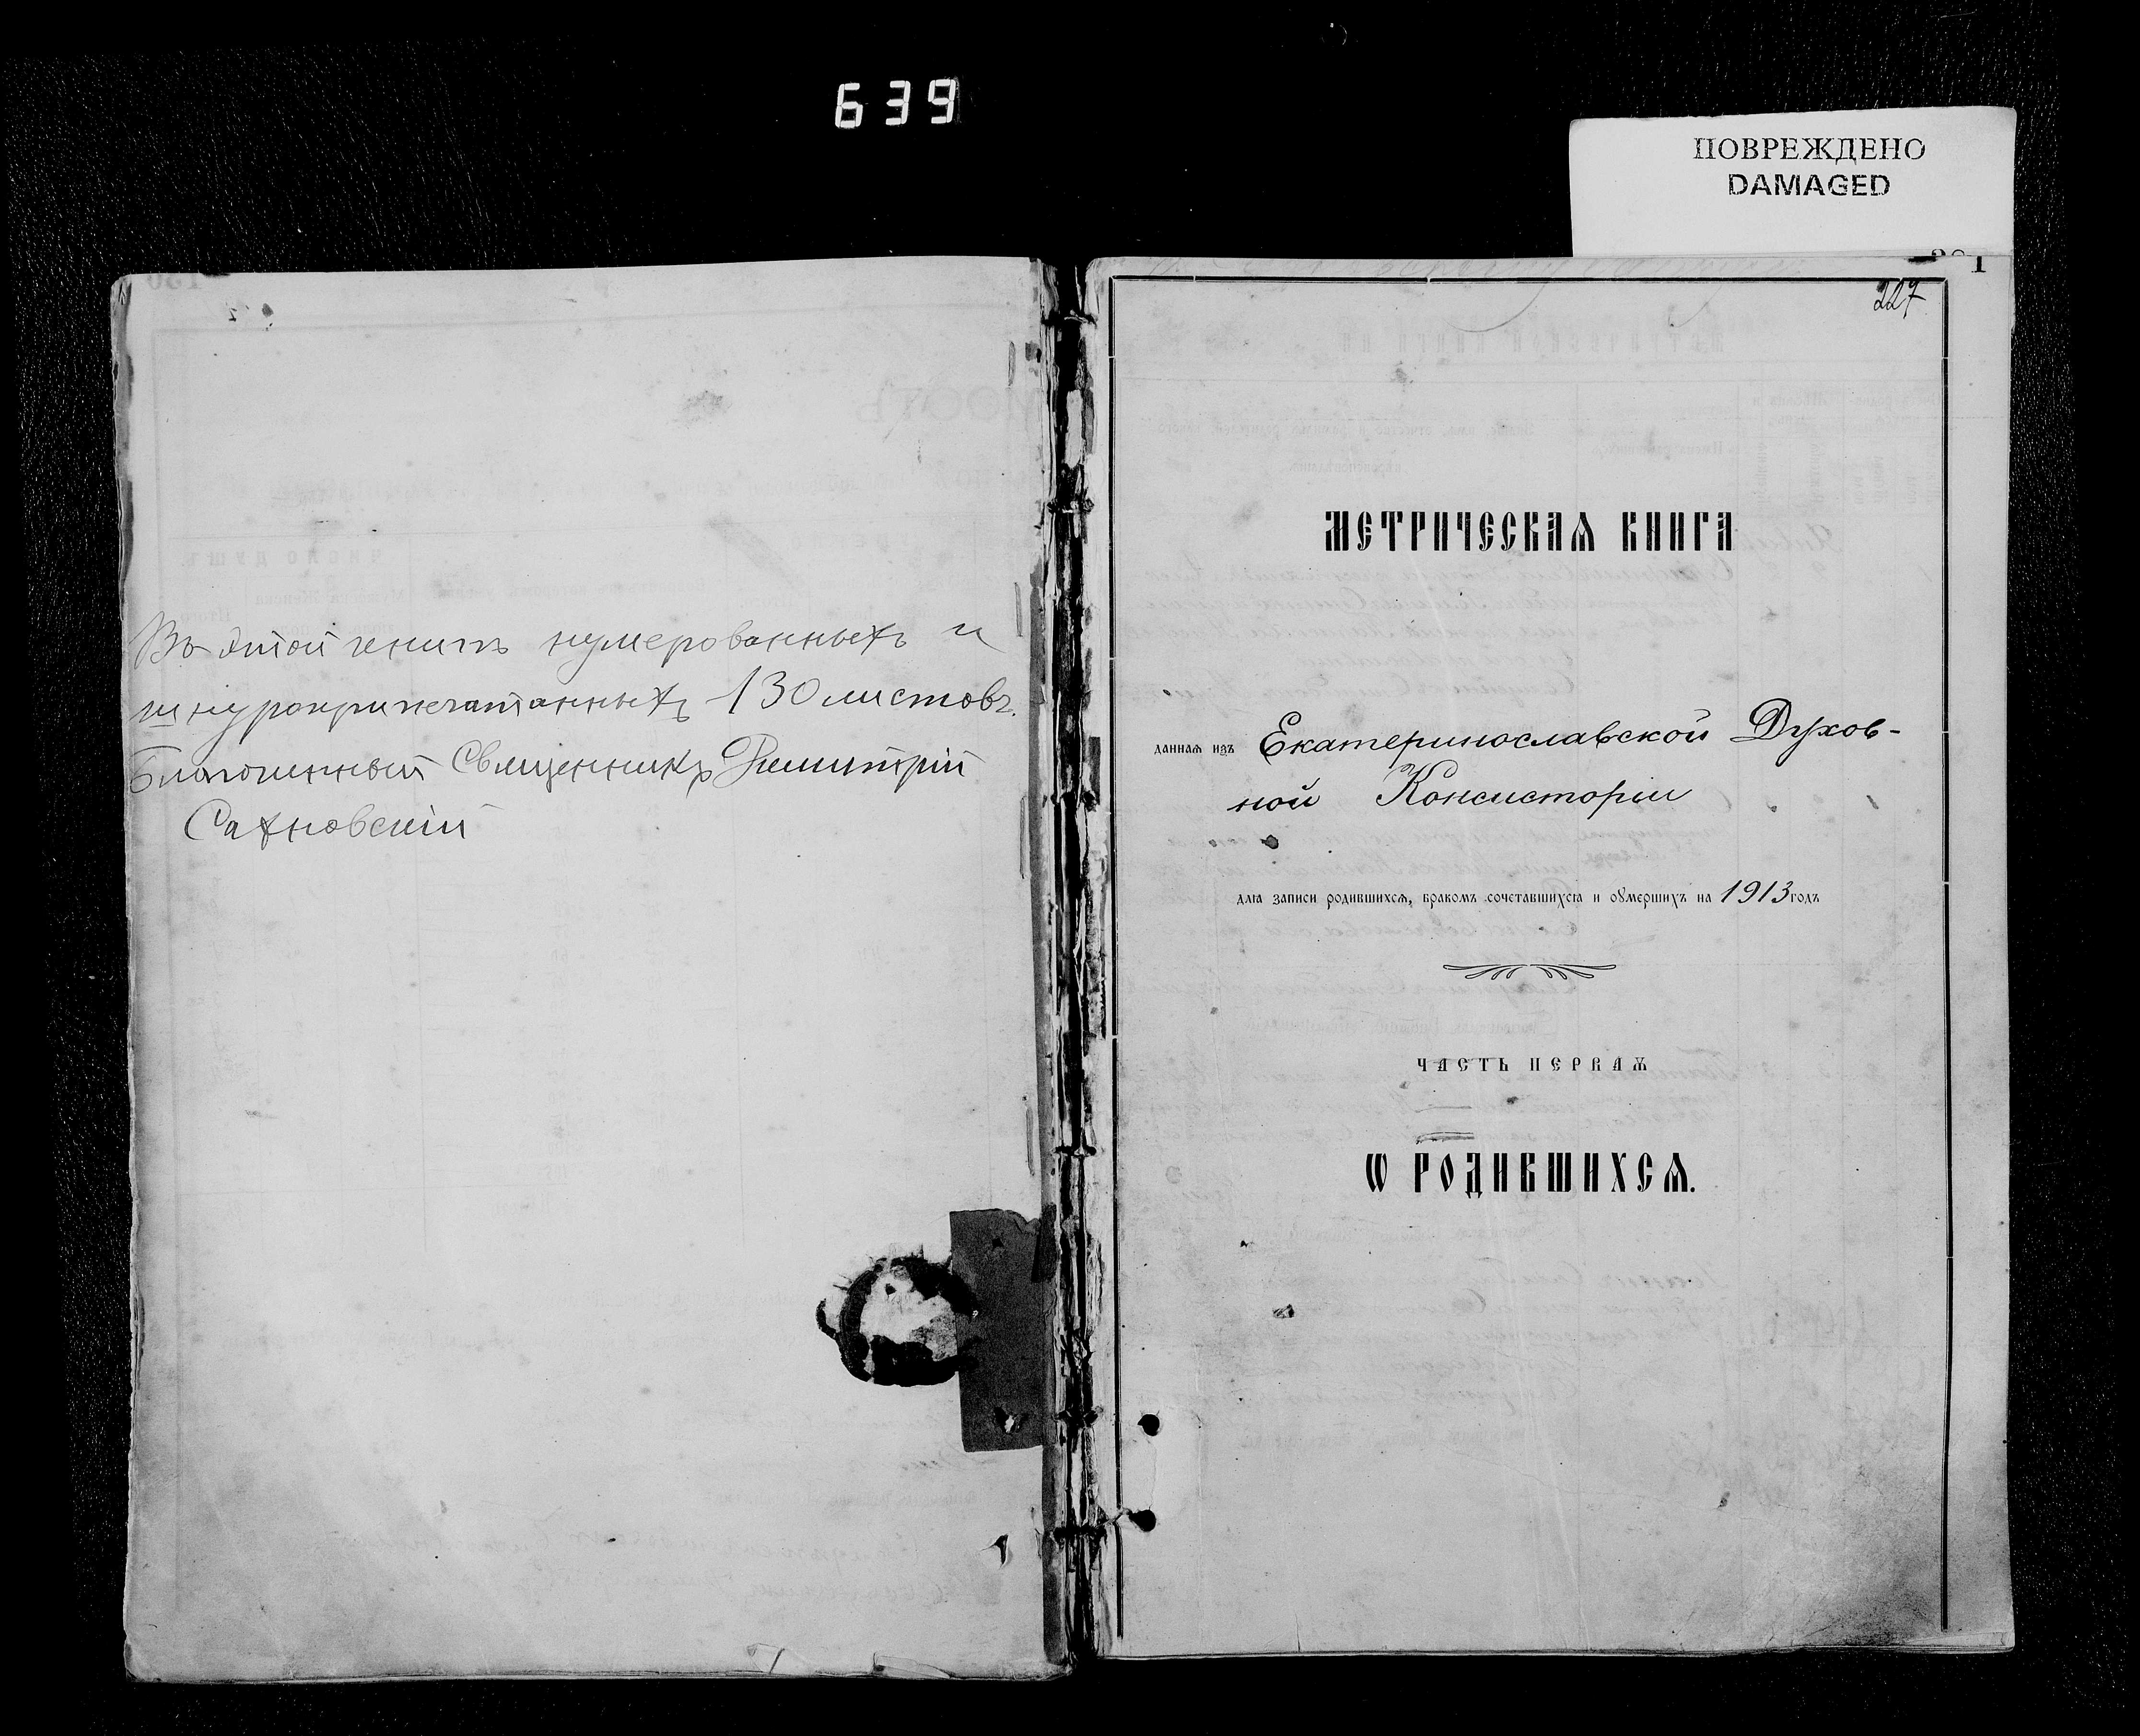 639
ПОВРЕЖДЕНО
DAMAGED
Въ этой книгѣ нумерованныхъ и
шнуроприпечатанныхъ 130 листовъ.
Благочинный Священникъ Димитрій
Сахновскій
227
МЕТРИЧЕСКАѦ КНИГА
даннаѧ изъ Екатеринославской Духов-
ной Консисторіи
длѧ записи родившихсѧ, бракомъ сочетавшихсѧ и ѹмершихъ на 1913 годъ
ЧАСТЬ ПЕРВАѦ
Ѡ РОДИВШИХСѦ.